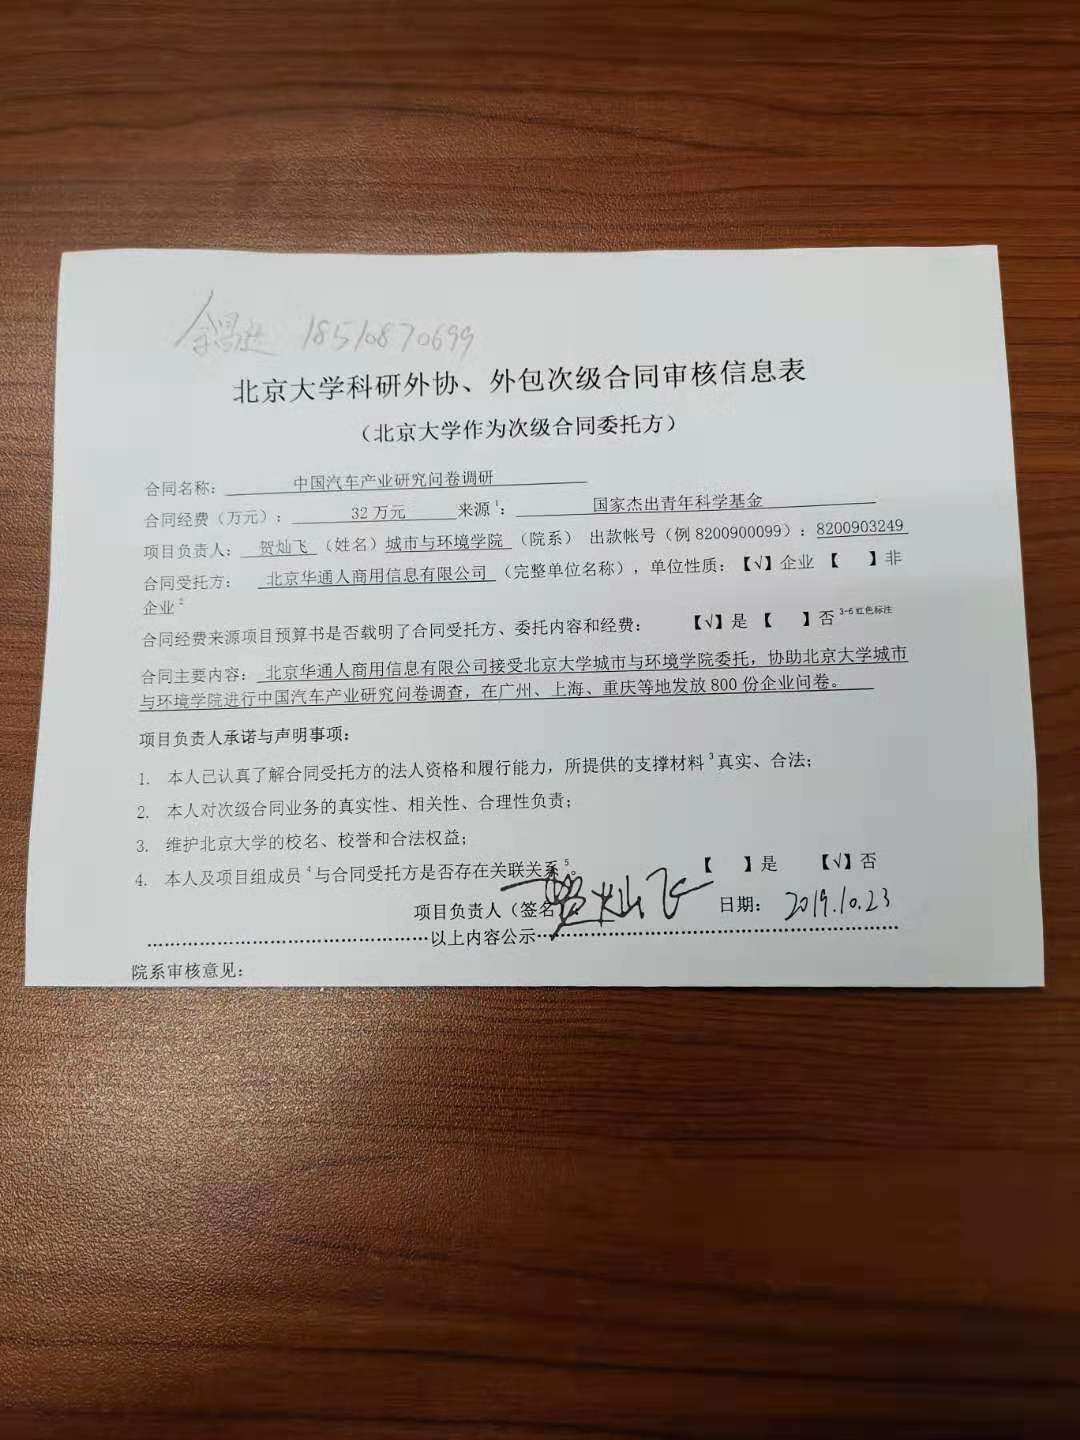 18510870699
北京大学科研外协、外包次级合同审核信息表
（北京大学作为次级合同委托方）
合同名称： 中国汽车产业研究问卷调研
合同经费（万元）： 32万元 来源1： 国家杰出青年科学基金
项目负责人： 贺灿飞 （姓名）城市与环境学院 （院系） 出款帐号（例8200900099）：8200903249
合同受托方： 北京华通人商用信息有限公司 （完整单位名称），单位性质：【√】企业 【 】非
企业2
合同经费来源项目预算书是否载明了合同受托方、委托内容和经费： 【√】是 【 】否 3-6红色标注
合同主要内容： 北京华通人商用信息有限公司接受北京大学城市与环境学院委托，协助北京大学城市
与环境学院进行中国汽车产业研究问卷调查，在广州、上海、重庆等地发放800份企业问卷。
项目负责人承诺与声明事项：
1. 本人已认真了解合同受托方的法人资格和履行能力，所提供的支撑材料3真实、合法；
2. 本人对次级合同业务的真实性、相关性、合理性负责；
3. 维护北京大学的校名、校誉和合法权益；
4. 本人及项目组成员4与合同受托方是否存在关联关系5。 【 】是 【√】否
项目负责人（签名）： 贺灿飞 日期： 2019.10.23
……………………………………………以上内容公示……………………………………………
院系审核意见：